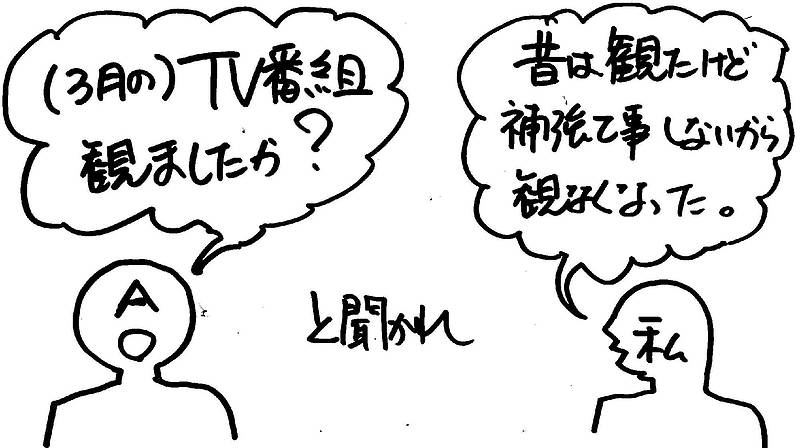 (3月の)TV番組
観ましたか?
昔は観たけど
補強て事しないから
観なくなった。
A
と聞かれ
私